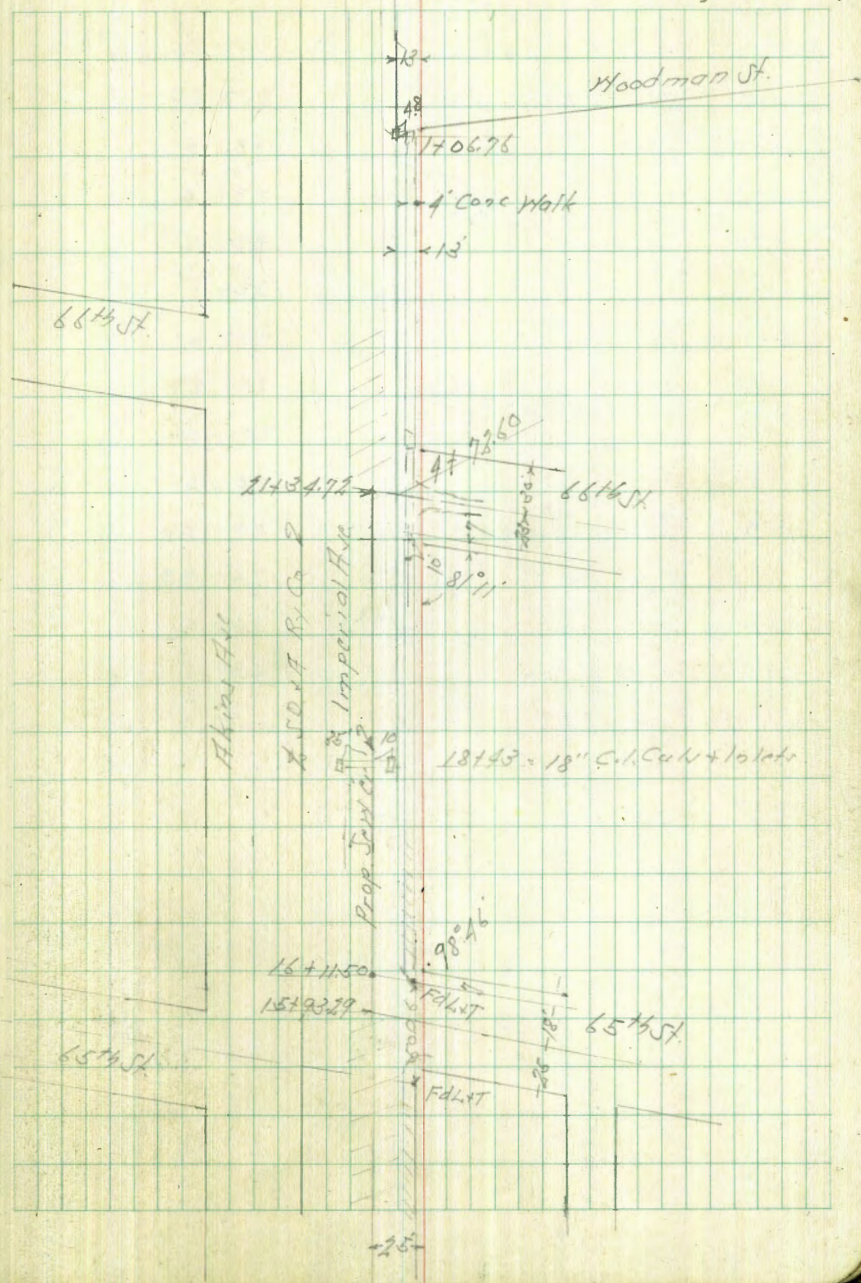 13
Woodman St.
48
1+06.76
4' Conc Walk
13'
66th St.
73.60
21+34.72
66th St
10
81°11'
Akins Ave
Imperial Ave
10
18+43 = 18" C.I. Culv + Inlets
Prop. Sewer
98°46'
16+11.50
Fd L&T
15+93.29
65th St.
65th St.
Fd L&T
25